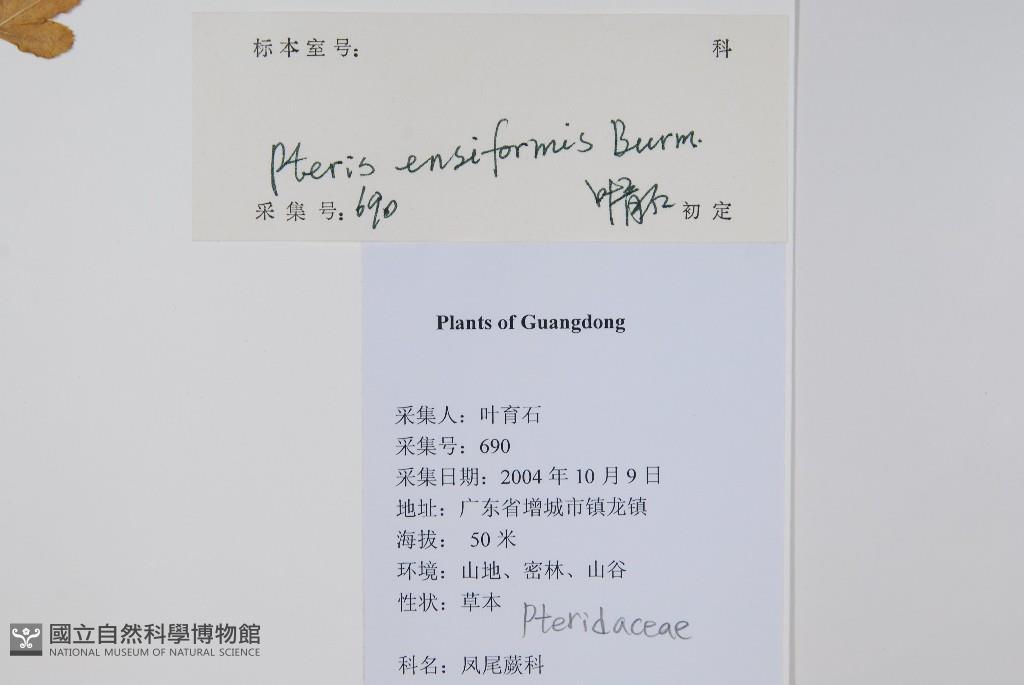 标本室号: 科
Pteris ensiformis Burm.
采集号: 690 叶育石 初定
Plants of Guangdong
采集人: 叶育石
采集号: 690
采集日期: 2004 年 10 月 9 日
地址: 广东省增城市镇龙镇
海拔: 50 米
环境: 山地、密林、山谷
性状: 草本
Pteridaceae
科名: 凤尾蕨科
國立自然科學博物館
NATIONAL MUSEUM OF NATURAL SCIENCE